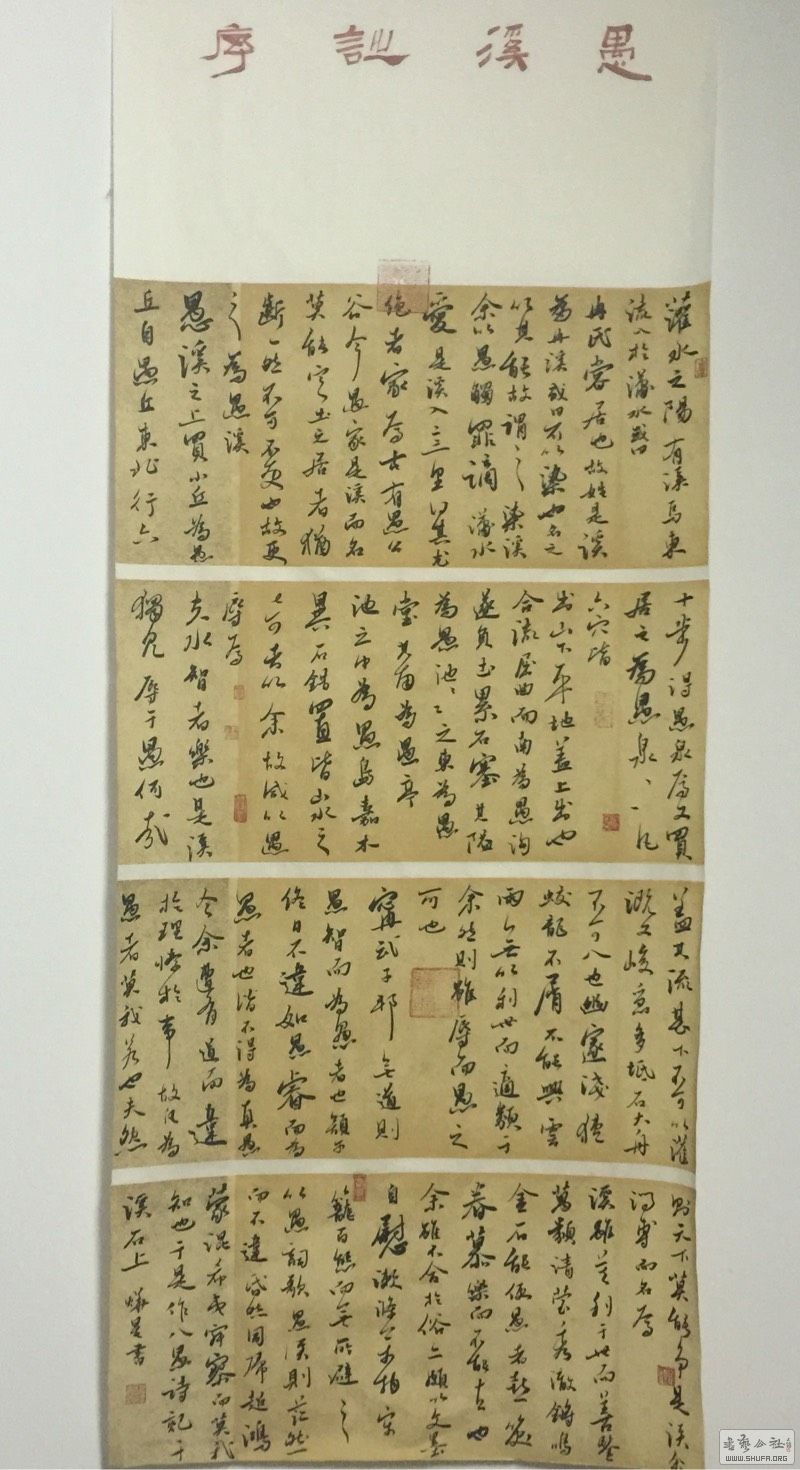 愚溪詩序
灌水之陽有溪焉東
流入於瀟水或曰
冉氏嘗居也故姓是溪
為冉溪或曰可以染也名之
以其能故謂之染溪
余以愚觸罪謫瀟水
愛是溪入二三里得其尤
絕者家焉古有愚公
谷今愚家是溪而名
莫能定土之居者猶
斷斷然不可不更也故更
之為愚溪
愚溪之上買小丘為愚
丘自愚丘東北行六
十步得愚泉焉又買
居之為愚泉、、凡
六穴皆
出山下平地蓋上出也
合流屈曲而南為愚溝
遂負土累石塞其隘
為愚池、、之東為愚
堂其南為愚亭
池之中為愚島嘉木
異石錯置皆山水之
可者以余故咸以愚
辱焉
夫水智者樂也是溪
獨見辱于愚何哉
蓋其流甚下不可以灌
溉又峻急多坻石大舟
不可入也幽邃淺狹
蛟龍不屑不能興雲
雨無以利世而適類于
余然則雖辱而愚之
可也
甯武子邦無道則
愚智而為愚者也顏子
終日不違如愚睿而為
愚者也皆不得為真愚
今余遭有道而違
於理悖於事故凡為
愚者莫我若也夫然
則天下莫能爭是溪余
得專而名焉
溪雖莫利于世而善鑒
萬類清瑩秀澈鏘鳴
金石能使愚者喜笑
眷慕樂而不能去也
余雖不合於俗亦頗以文墨
自慰漱滌萬物牢
籠百態而無所避之
以愚詞歌愚溪則茫然
而不違昏然同歸超鴻
蒙混希夷寂寥而莫我
知也于是作八愚詩記于
溪石上
書
書藝公社
WWW.SHUFA.ORG